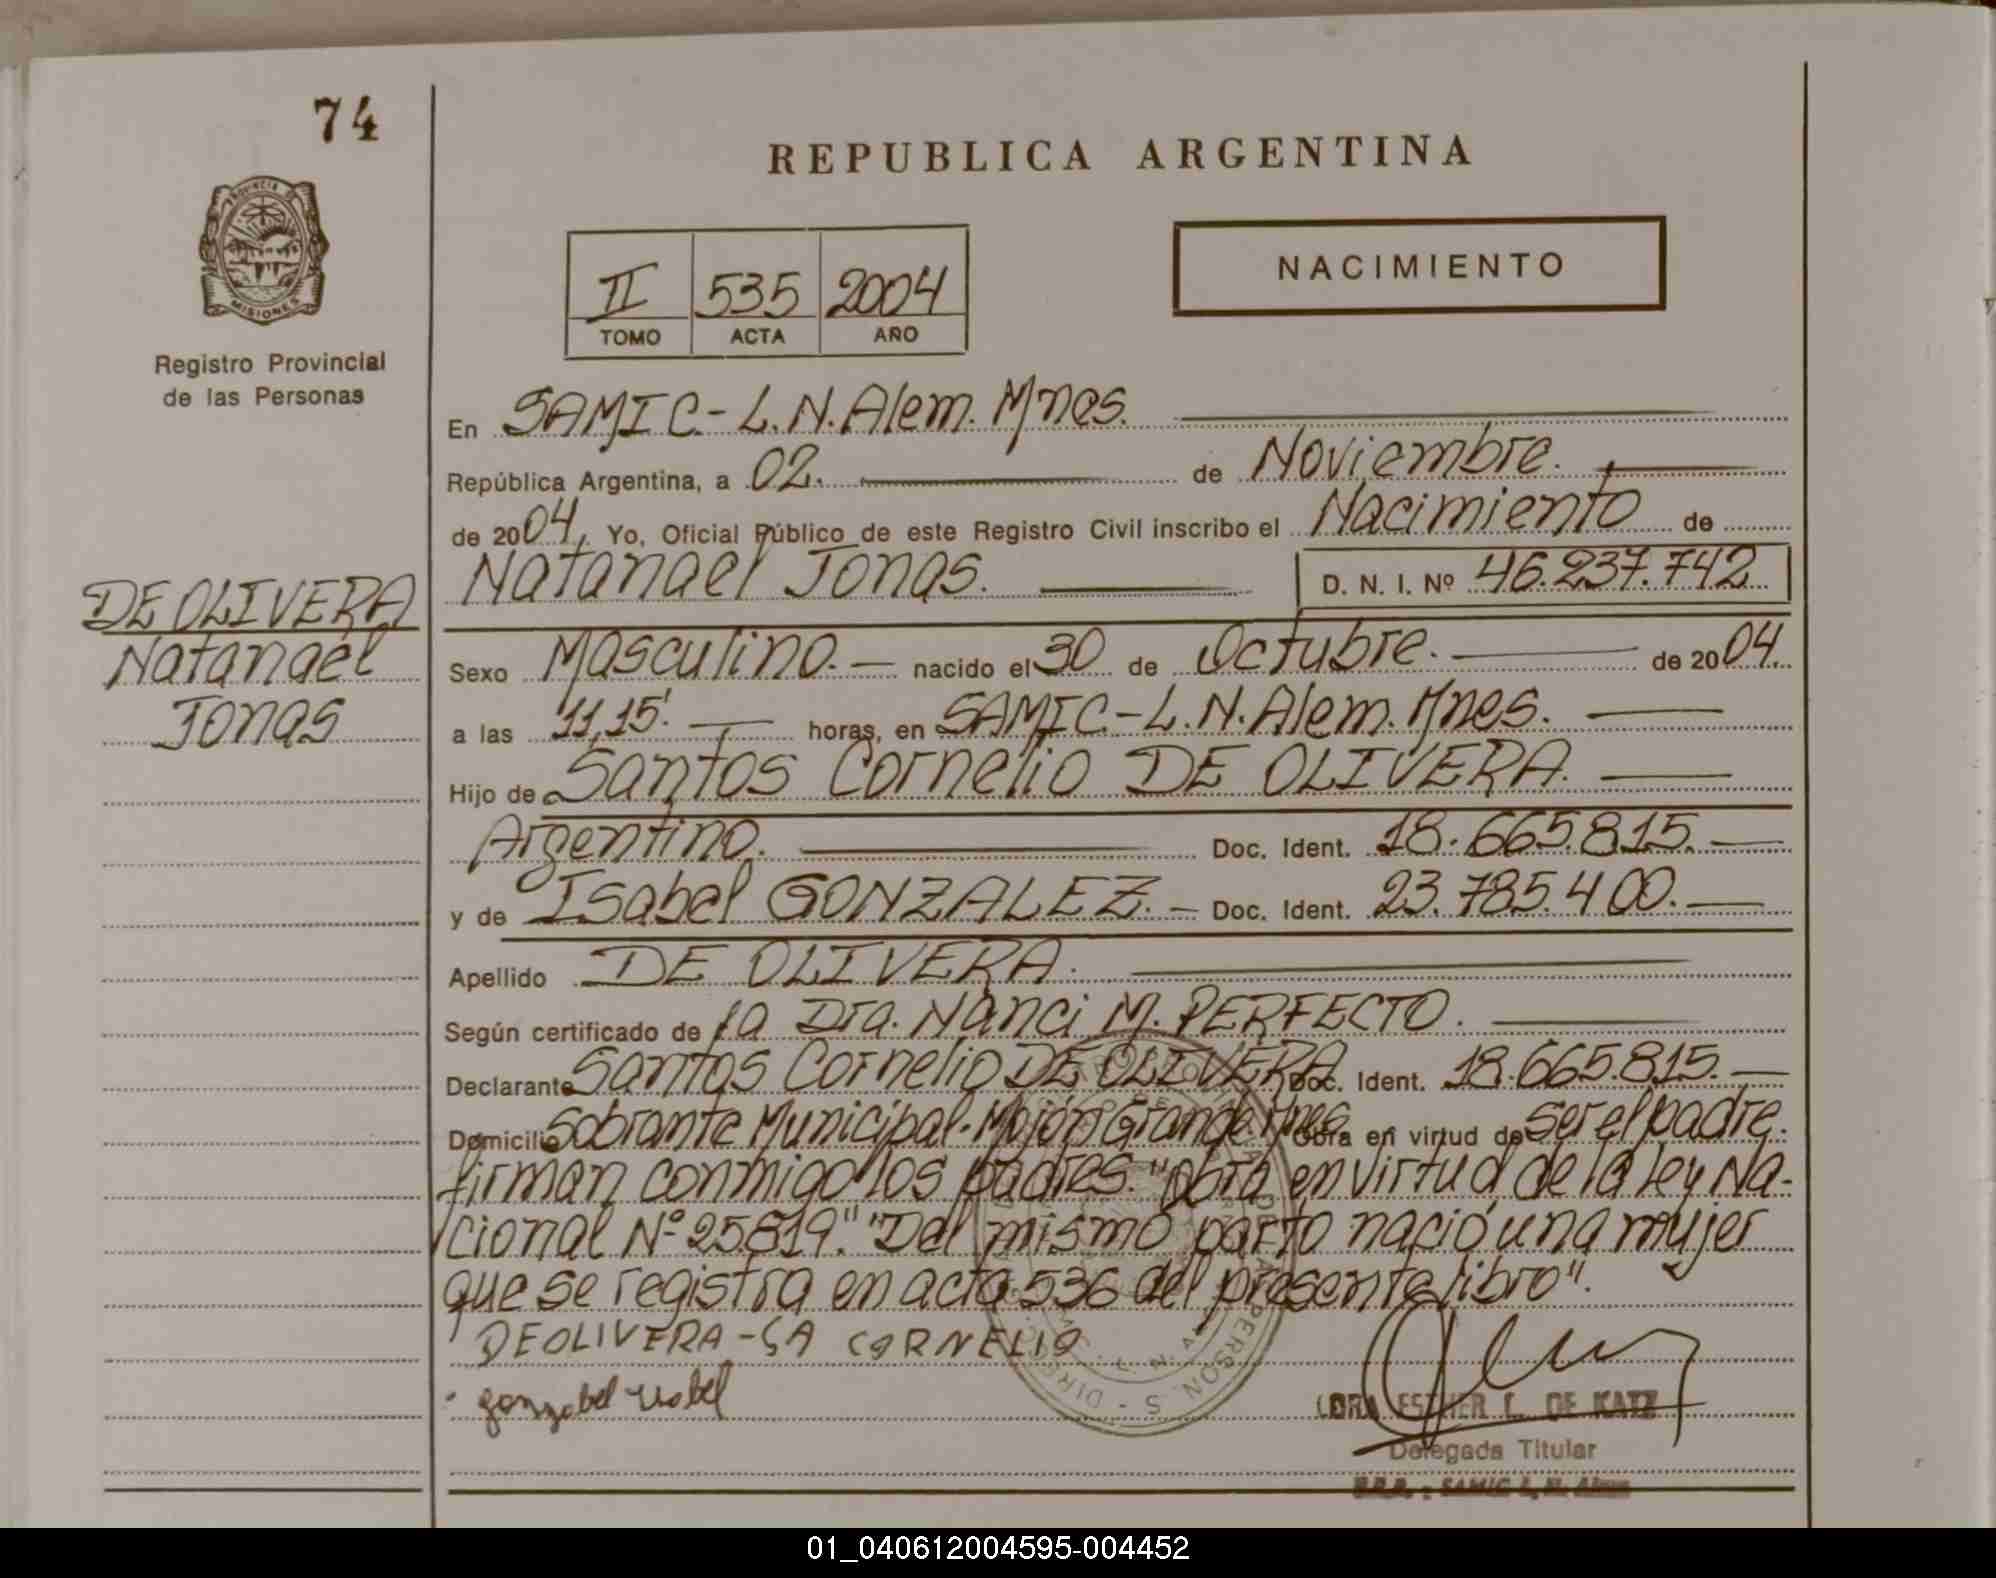 74
REPUBLICA ARGENTINA
PROVINCIA DE
MISIONES
Registro Provincial
de las Personas
II 535 2004
TOMO ACTA AÑO
NACIMIENTO
En SAMIC.- L.N.Alem. Mnes.
República Argentina, a 02. de Noviembre.
de 2004, Yo, Oficial Público de este Registro Civil inscribo el Nacimiento de
Natanael Jonas. D. N. I. Nº 46.237.742
DE OLIVERA
Natanael
Jonas
Sexo Masculino. nacido el 30 de Octubre. de 2004.
a las 11,15'. horas, en SAMIC.-L.N.Alem. Mnes.
Hijo de Santos Cornelio DE OLIVERA.
Argentino. Doc. Ident. 18.665.815.
y de Isabel GONZALEZ. Doc. Ident. 23.785.400.
Apellido DE OLIVERA.
Según certificado de la Dra. Nanci M. PERFECTO.
Declarante Santos Cornelio DE OLIVERA Doc. Ident. 18.665.815.
Domicilio Sobrante Municipal. Mojón Grande. Mnes. Obra en virtud de ser el padre.
firman conmigo los padres. "obra en virtud de la ley Na-
cional Nº 25.819." "Del mismo parto nació una mujer
que se registra en acta 536 del presente libro".
DEOLIVERA - SA CORNELIO
gonzabel isabel
DRA ESTHER L. DE KATZ
Delegada Titular
R.P.P. - SAMIC L. N. Alem
01_040612004595-004452